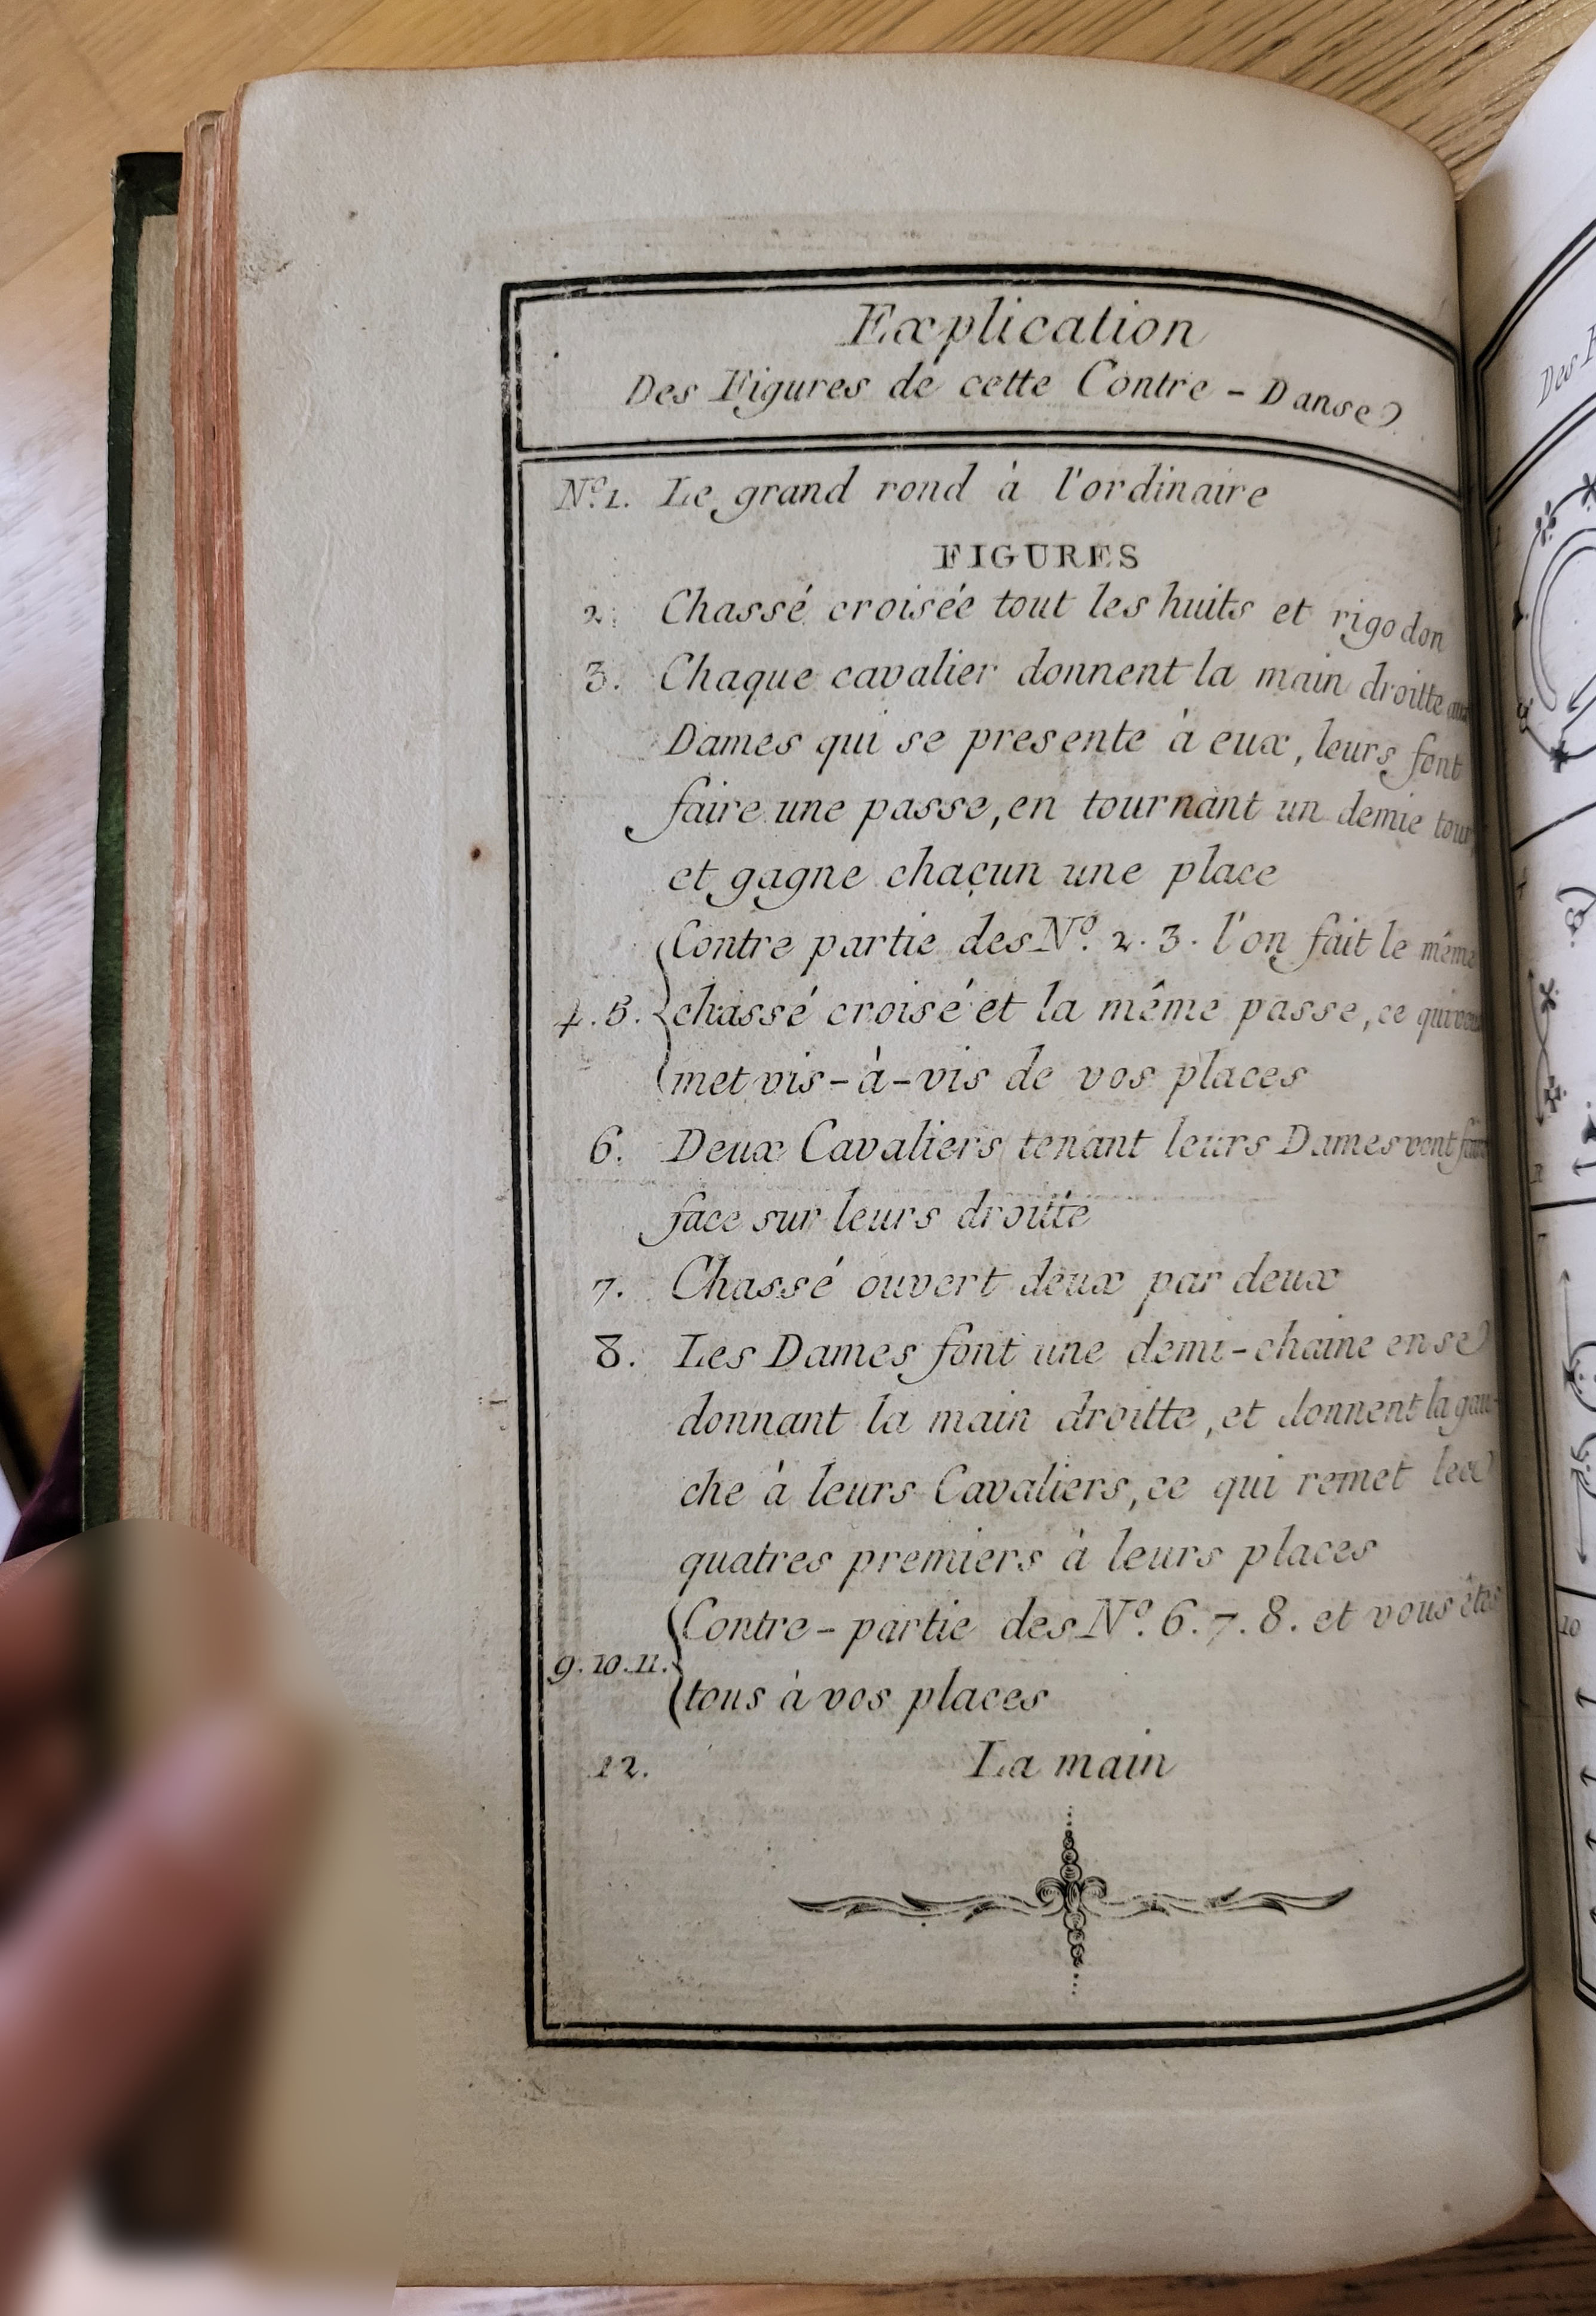 Explication
Des Figures de cette Contre-Danse
N.º 1. Le grand rond à l'ordinaire
FIGURES
2. Chassé croisée tout les huits et rigodon
3. Chaque cavalier donnent la main droitte aux
Dames qui se presente à eux, leurs font
faire une passe, en tournant un demie tour
et gagne chaçun une place
Contre partie des N.º 2. 3. l'on fait le même
4. 5. chassé croisé et la même passe, ce qui vous
met vis-à-vis de vos places
6. Deux Cavaliers tenant leurs Dames vont faire
face sur leurs droitte
7. Chassé ouvert deux par deux
8. Les Dames font une demi-chaine en se
donnant la main droitte, et donnent la gau-
che à leurs Cavaliers, ce qui remet les
quatres premiers à leurs places
Contre-partie des N.º 6. 7. 8. et vous êtes
9. 10. 11. tous à vos places
12. La main
Des
10